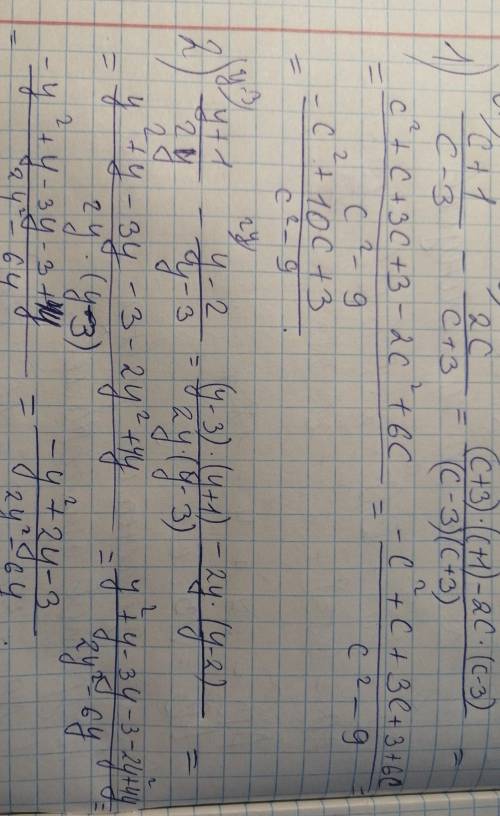 1) (c+1)/(c-3) - 2c/(c+3) = ((c+3)·(c+1)-2c·(c-3))/((c-3)(c+3)) =
= (c²+c+3c+3-2c²+6c)/(c²-9) = (-c²+c+3c+3+6c)/(c²-9) =
= (-c²+10c+3)/(c²-9).
2) (y-3) (y+1)/(2y) - 2y (y-2)/(y-3) = ((y-3)·(y+1)-2y·(y-2))/(2y·(y-3)) =
= (y+y-3y-3-2y²+4y)/(2y·(y-3)) = (y²+y-3y-3-2y²+4y)/(2y²-6y) =
= (-y²+y-3y-3+4y)/(2y²-6y) = (-y²+2y-3)/(2y²-6y).